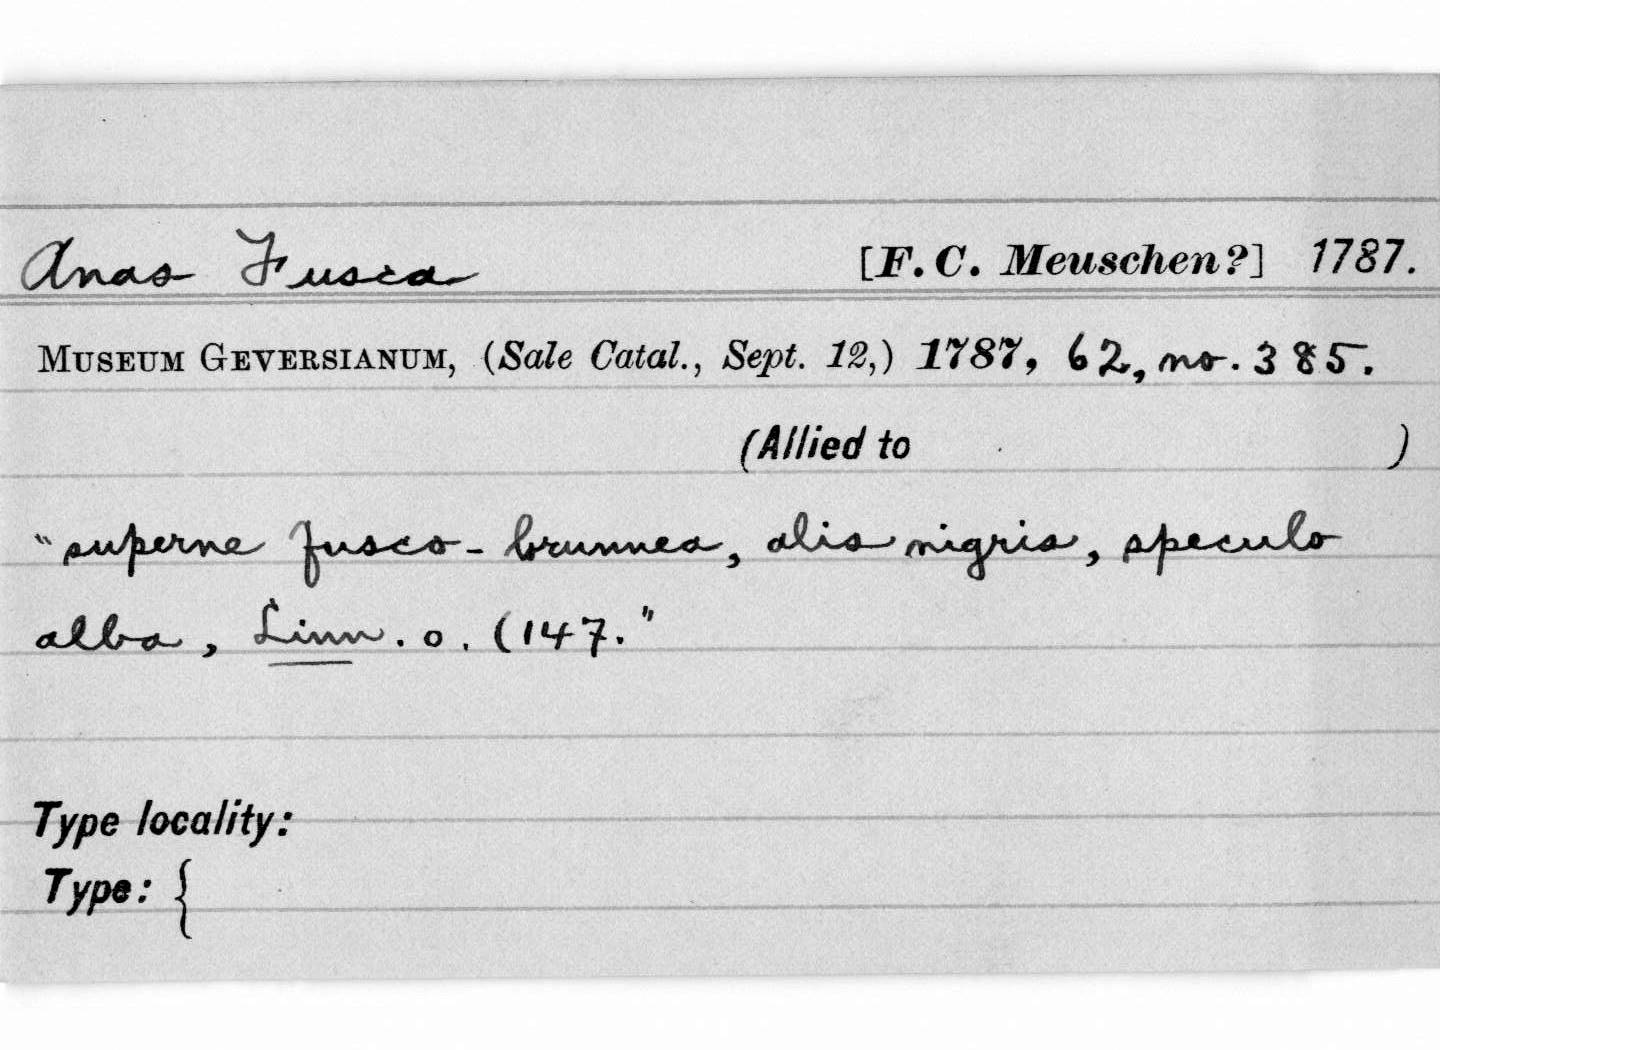 Anas Fusca [F. C. Meuschen?] 1787.
MUSEUM GEVERSIANUM, (Sale Catal., Sept. 12,) 1787, 62, no. 385.
(Allied to )
"superne fusco-brunnea, alis nigris, speculo
alba, Linn. o. (147."
Type locality:
Type: {